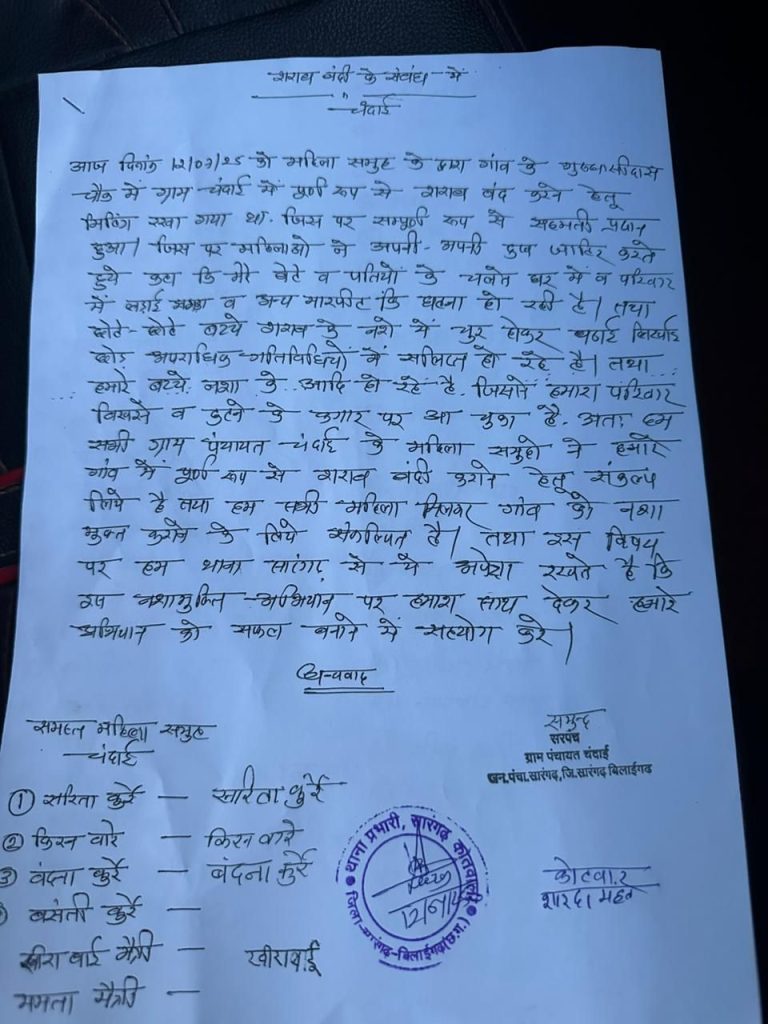 शराब बंदी के संबंध में
चंदाई
आज दिनांक 12/07/25 को महिला समुह के द्वारा गांव के गुरुघासीदास
चौक में ग्राम चंदाई में पूर्ण रूप से शराब बंद करने हेतू
मिटिंग रखा गया था. जिस पर सम्पूर्ण रूप से सहमती प्रदान
हुआ। जिस पर महिलाओ ने अपनी-अपनी दुख जाहिर करते
हुये कहा कि मेरे बेटे व पतियों के चलते घर में व परिवार
में लड़ाई झगड़ा व अन्य मारपीट कि घटना हो रही है। तथा
छोटे-छोटे बच्चे शराब के नशे में चुर होकर पढाई लिखाई
छोड अपराधिक गतिविधियों में सलिप्त हो रहे है। तथा
हमारे बच्चे नशा के आदि हो रहे है. जिससे हमारा परिवार
बिखरने व टुटने के कगार पर आ चुका है. अतः हम
सभी ग्राम पंचायत चंदाई के महिला समुहो ने हमारे
गांव में पूर्ण रूप से शराब बंदी कराने हेतू संकल्प
लिये है तथा हम सभी महिला मिलकर गांव को नशा
मुक्त कराने के लिये संकल्पित है। तथा इस विषय
पर हम थाना सारंगढ़ से ये अपेक्षा रखते है कि
इस नशामुक्ति अभियान पर हमारा साथ देकर हमारे
अभियान को सफल बनाने में सहयोग करे।
धन्यवाद
समस्त महिला समुह
चंदाई
समुन्द
सरपंच
ग्राम पंचायत चंदाई
जन.पंचा.सारंगढ़,जि.सारंगढ़ बिलाईगढ
① सरिता कुर्रे — सारिता कुर्रे
② किरन वारे — किरन वारे
③ वंदना कुर्रे — बंदना कुर्रे
बसंती कुर्रे —
खीरा बाई मैत्री — खीराबाई
ममता मैत्री —
थाना प्रभारी, सारंगढ़ कोतवाली
जिला-सारंगढ़-बिलाईगढ़(छ.ग.)
कोटवार
शारदा महंत